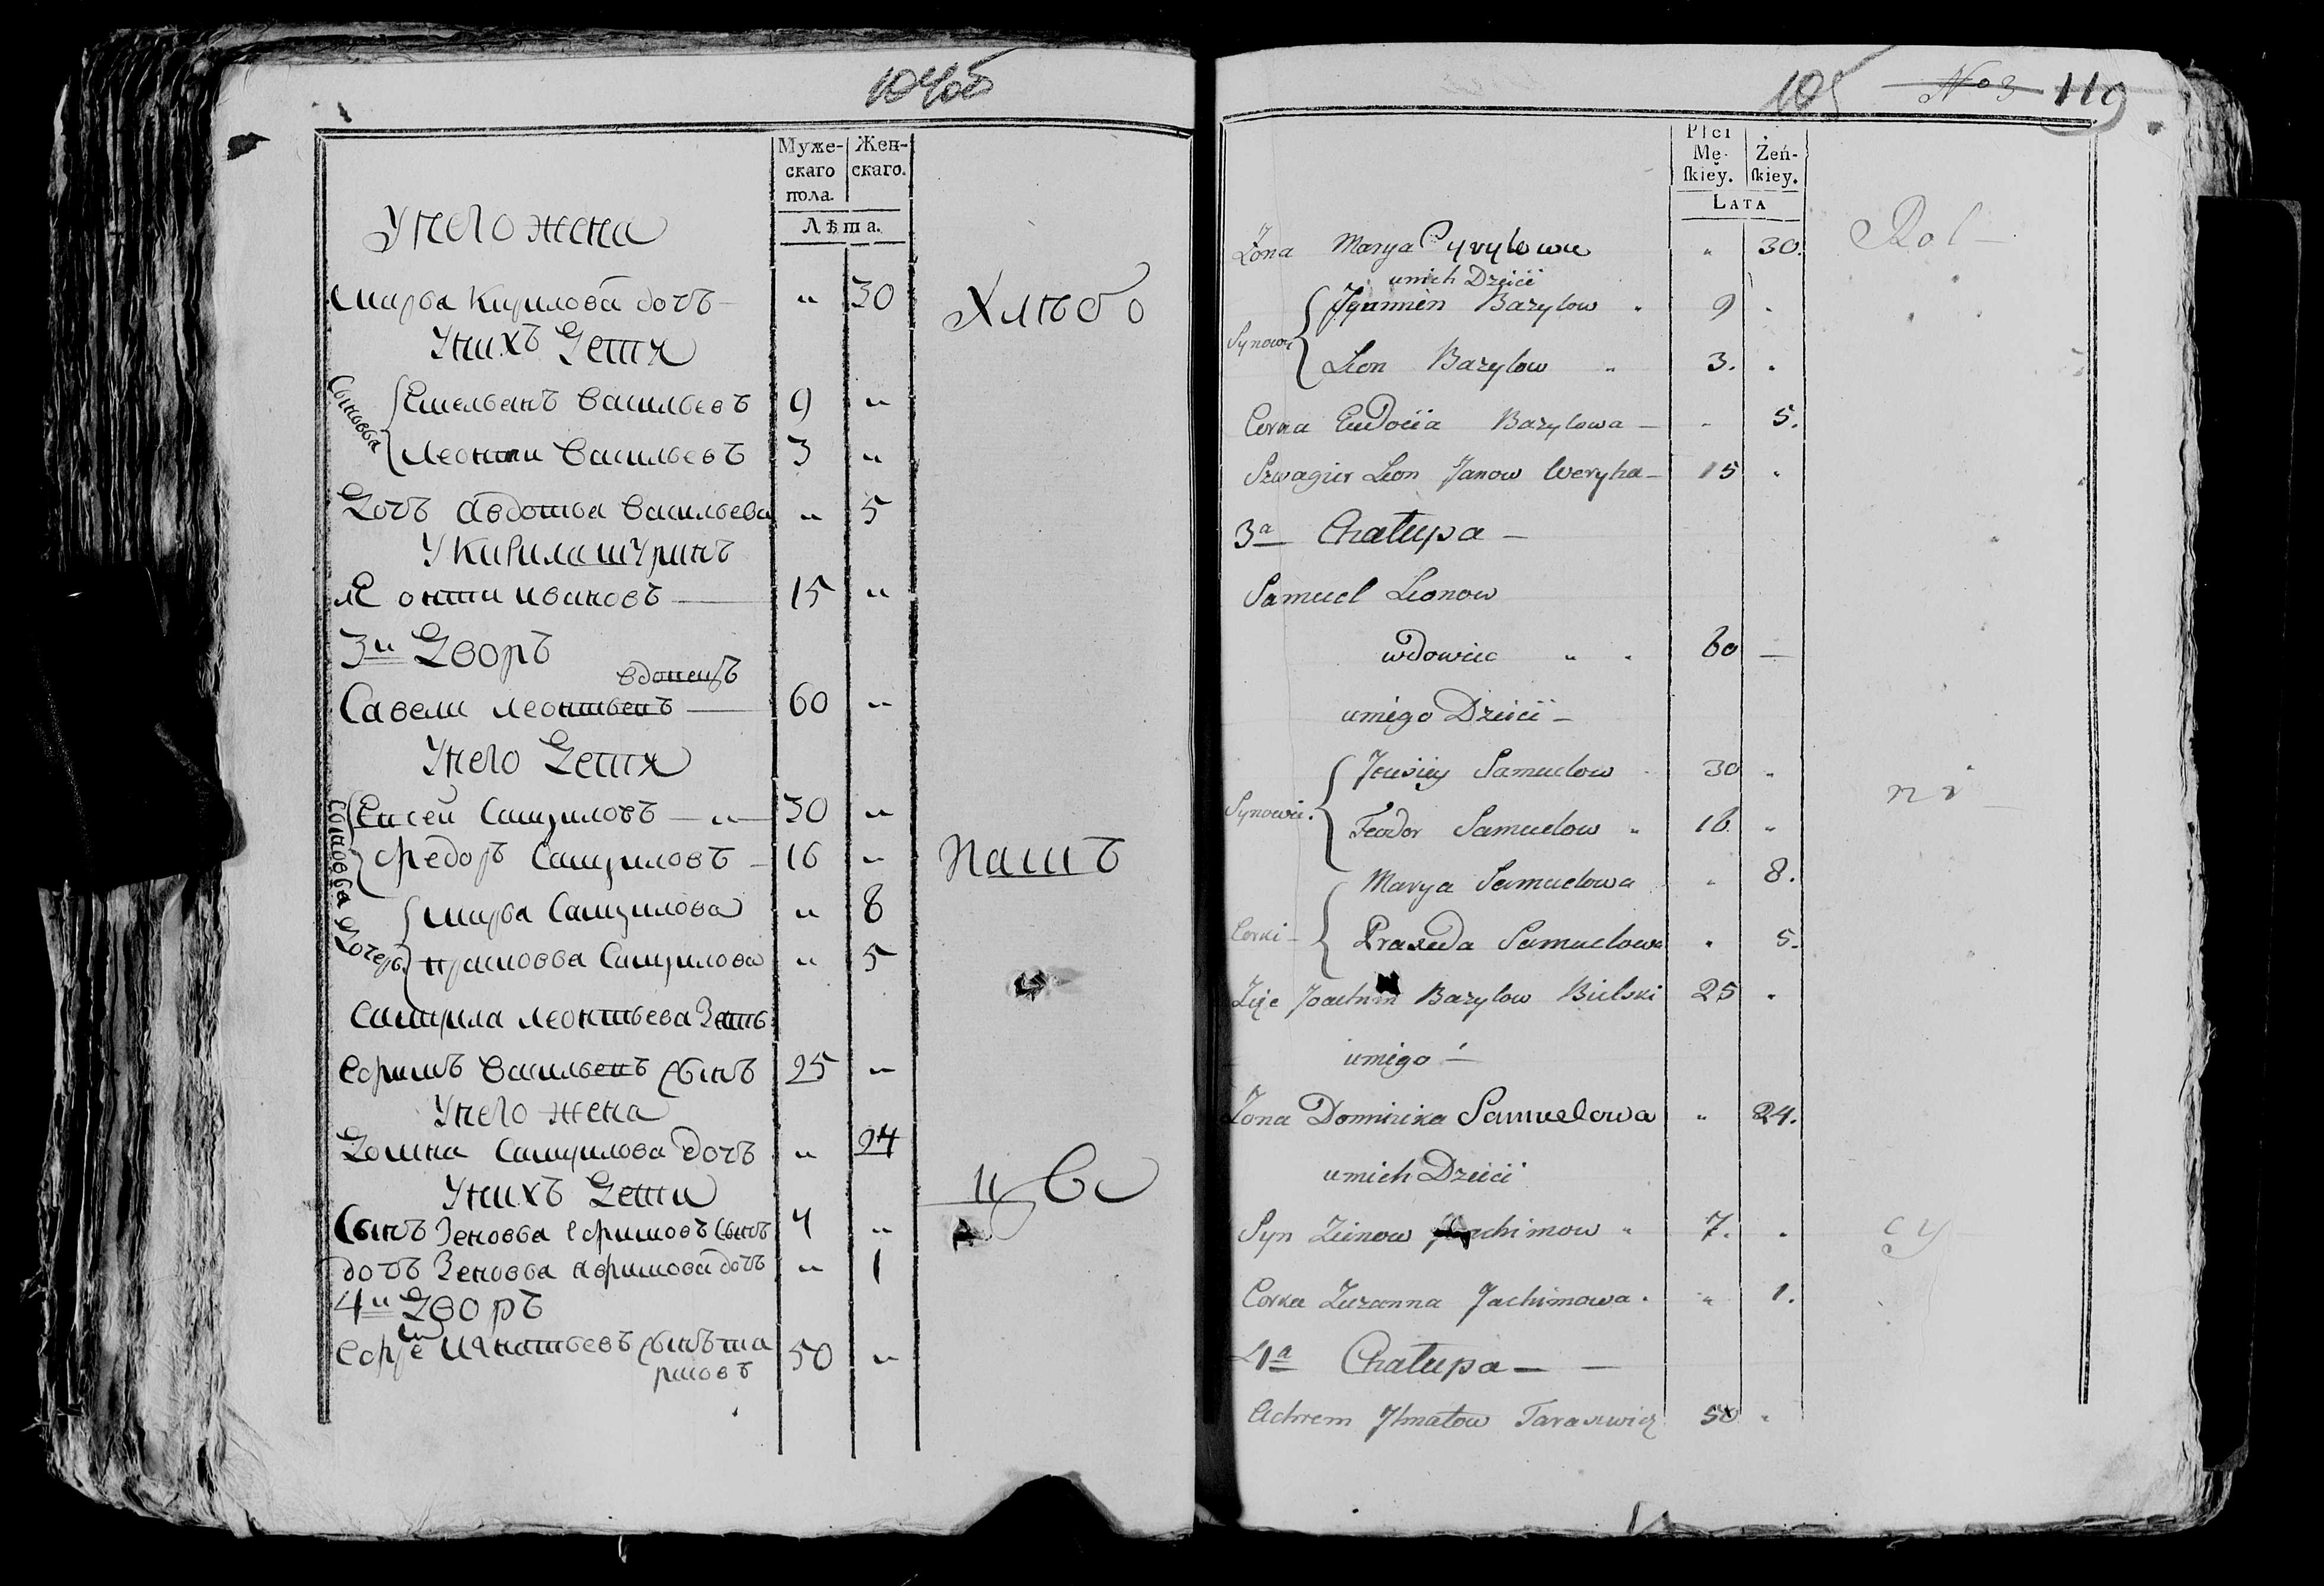 104об
Муже-
скаго
пола.
Жен-
скаго.
Лѣта.
У него жена
Марья Кирилова дочь — „ 30
Хлѣбо
У нихъ Дети
Сыновья
Емельянъ Васильевъ 9 „
Леонти Васильевъ 3 „
Дочь Авдотья Васильева „ 5
У Кирила шуринъ
Леонти Ивановъ — 15 „
3й Дворъ
вдовецъ
Савели Леонтьевъ — 60 „
У него Дети
Сыновья
Евсей Самуиловъ — „ — 30 „
Федоръ Самуиловъ — 16 „
Пашъ
Дочерь
Марья Самуилова „ 8
Прасковья Самуилова „ 5
Самуила Леонтьева Зять
Ефимъ Васильевъ сынъ 25 „
У него жена
Домна Самуилова дочь „ 24
У нихъ Дети
Сынъ Зеновья Ефимовъ сынъ 7 „
дочь Зеновья Афимова дочь „ 1
4й Дворъ
Игнатьевъ сынъ та
расовъ 50 „
105 No 3 119
Płci
Mę-
ſkiey.
Żeń-
ſkiey.
Lata
Żona Marya Cyrylowa „ 30.
Rol—
unich Dzieci
Synowie
Bazylow „ 9 „
Leon Bazylow „ 3. „
Corka Eudocia Bazylowa — „ 5.
Szwagier Leon Janow Weryha — 15 „
3a Chałupa —
Samuel Leonow
wdowiec „ „ 60 —
uniego Dzieci —
Synowie.
Jewsiey Samuelow 30 „
ni—
Feodor Samuelow „ 16 „
Corki —
Marya Samuelowa „ 8.
Praxeda Samuelowa „ 5.
Zięć Joachim Bazylow Bielski 25 „
uniego —
Żona Dominika Samuelowa „ 24.
unich Dzieci
Syn Zienow Jachimow „ 7. „
cy
Corka Zuzanna Jachimowa. „ 1.
4a Chałupa — —
Achrem Ihnatow Tarasewicz 50 „